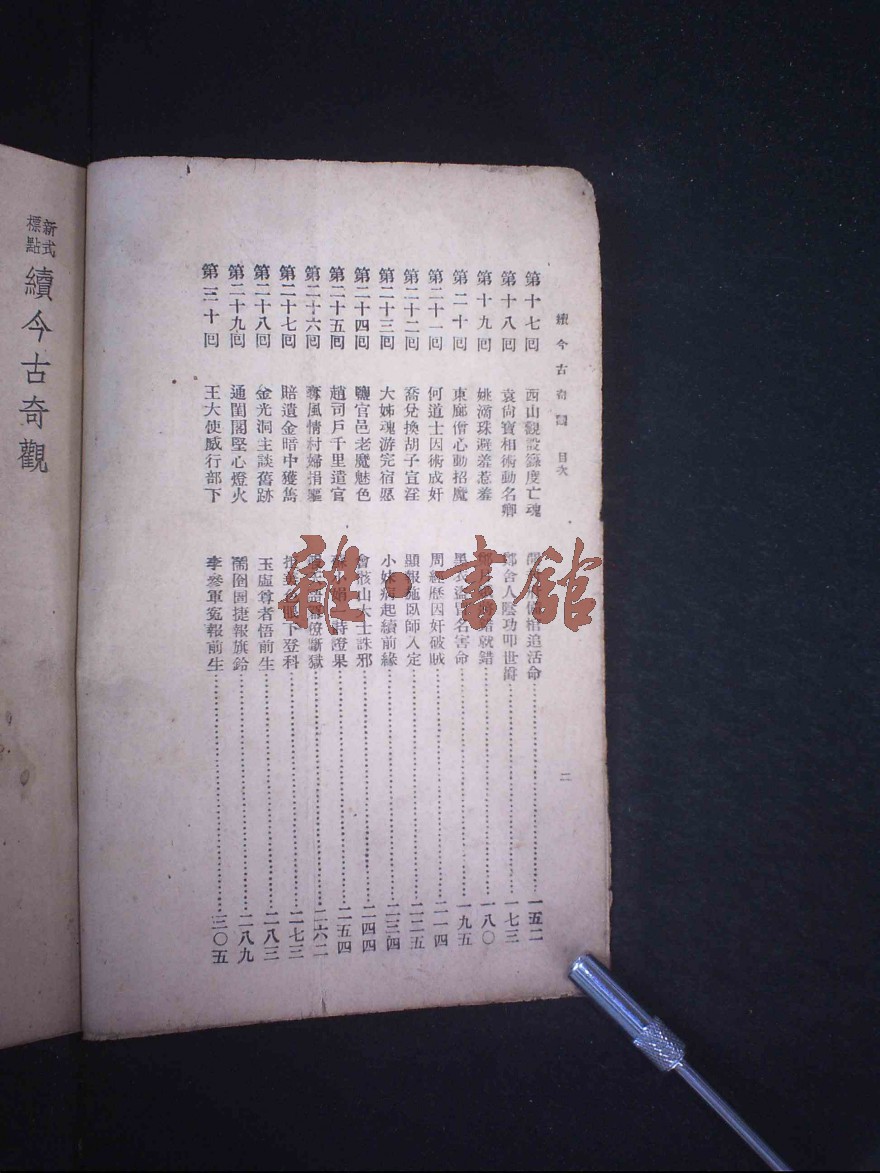 續今古奇觀 目次 二
第十七回 西山觀設籙度亡魂 開封府備棺追活命 一五二
第十八回 袁尙寶相術動名卿 鄭舍人陰功叩世爵 一七三
第十九回 姚滴珠避羞惹羞 就錯 一八〇
第二十回 東廊僧心動招魔 黑衣盜冒名害命 一九五
第二十一回 何道士因術成奸 周經歷因奸破賊 二一四
第二十二回 喬兌換胡子宣淫 顯報施臥師入定 二二五
第二十三回 大姊魂游完宿愿 小妹病起續前緣 二三四
第二十四回 鹽官邑老魔魅色 會骸山大士誅邪 二四四
第二十五回 趙司戶千里遣官 蘇小娟 詩證果 二五四
第二十六回 奪風情村婦捐軀 斷獄 二六二
第二十七回 賠遺金暗中獲雋 眼下登科 二七三
第二十八回 金光洞主談舊跡 玉虛尊者悟前生 二八三
第二十九回 通閨闥堅心燈火 鬧囹圄捷報旗鈴 二八九
第三十回 王大使威行部下 李參軍冤報前生 三〇五
新式標點 續今古奇觀
雜·書館